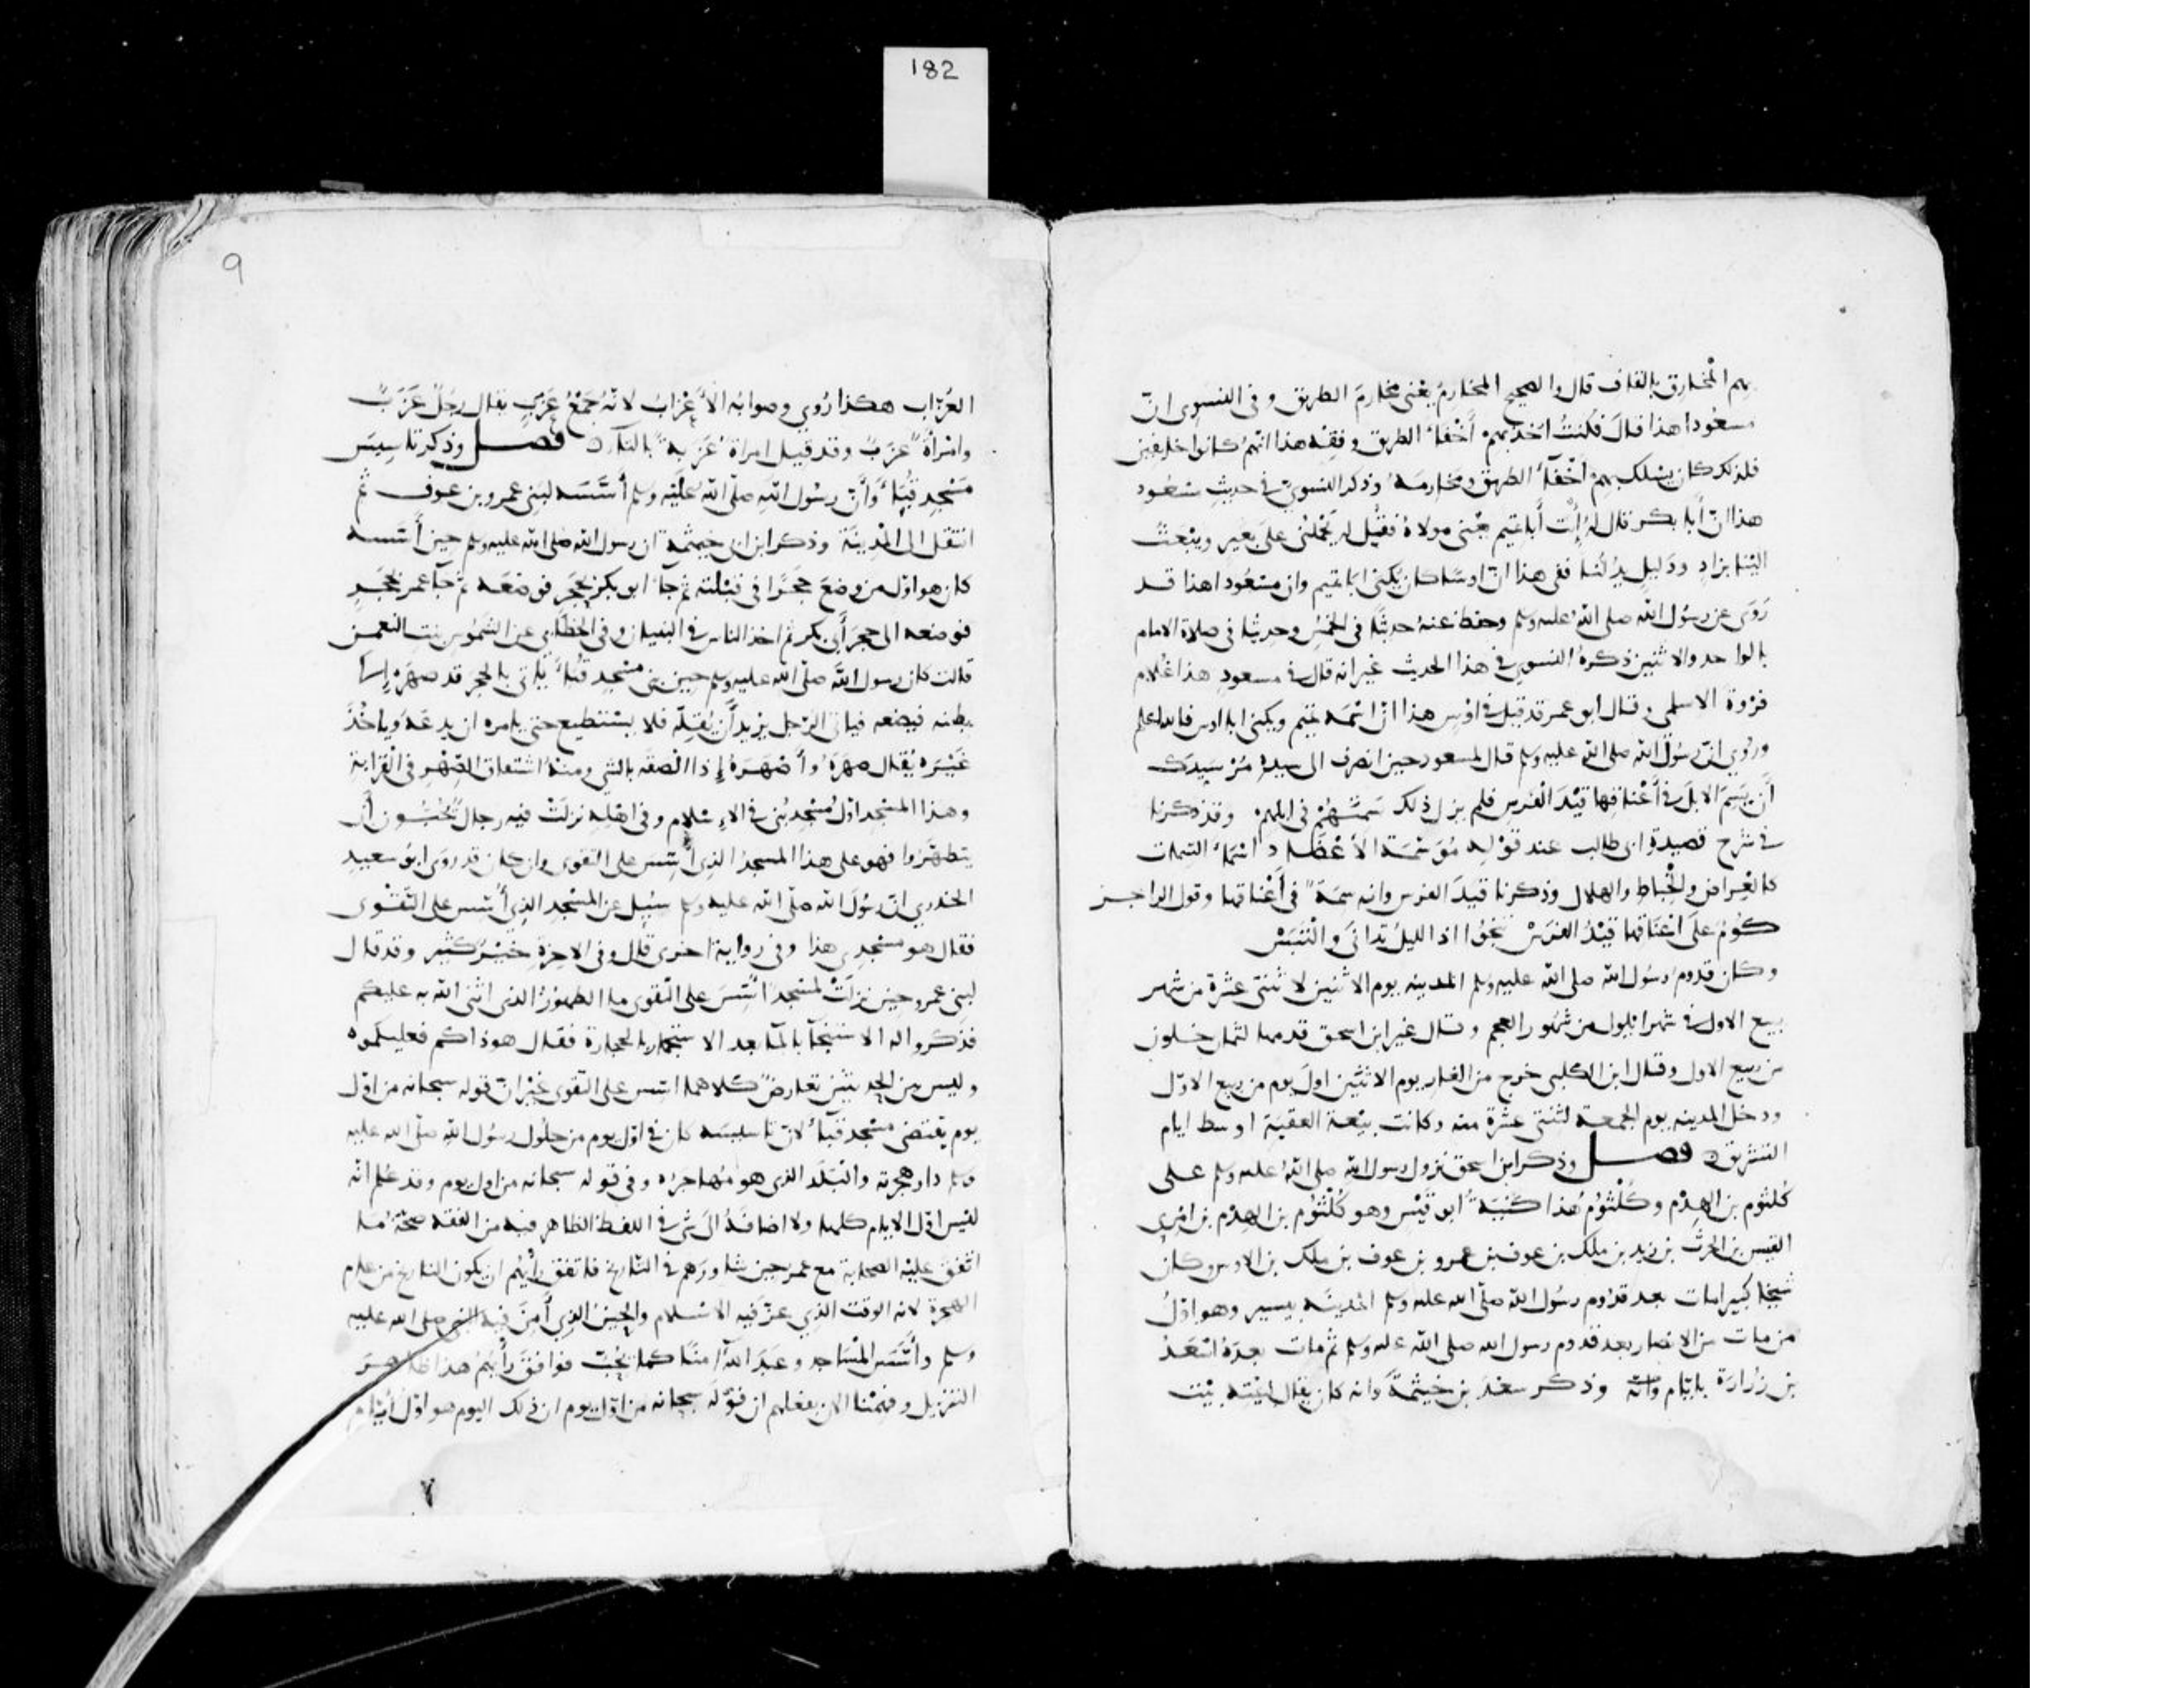 182
بهم المخارق بالقاف قال والصحيح المخارم يعنى مخارم الطريق وفى النسوى انّ
مسعُودا هذا قالَ فكنتُ آخذ بهم أخْفاءَ الطريق وفقه هذا انهم كانوا خايفين
فلذلك كان يسلك بهم اخفآءَ الطريق ومخارمه وذكر النسوىّ فى حديثِ مسْعُود
هذا انّ أبا بكر قال لهُ إئت أبا تميم يعْنى مولاهُ فقُل له يَحْملنى على بعير ويبْعَث
الينا بزادٍ ودَليل يدُلّنا ففى هذا انّ اوسًا كان يكنى ابا تميم وان مسْعُودا هذا قد
رَوَى عن رسُول الله صلى الله عليه وسلم وحفظ عنهُ حديثًا فى الخمْس وحديثا فى صلاة الامام
بالواحد والاثنين ذكرهُ النسوى فى هذا الحديث غير انه قال فى مسعودٍ هذا غُلام
فرْوة الاسلمى وقال ابو عمر قد قيل فى اوْسٍ هذا انّ اسْمه تميم ويكنى ابا اوس فالله اعلم
ورُوي انّ رسُولَ الله صلى الله عليه وسلم قال لمسعود حين انصرف الى سيده مُرْ سَيدَك
أن يَسِمَ الابلَ فى أعْناقها قيْدَ الفرس فلم يزل ذلك سمتهُمْ فى ابلهم وقد ذكرنا
فى شرح قصيدة ابى طالب عند قوْله مُوَسّمَة الأعْضاد اسْماءَ السِمات
كالعِراض والخِباط والهلال وذكرنا قيدَ الفرس وانه سمَةٌ فى أعْناقها وقول الراجز
كُومٌ على أعْناقها قيْدُ الفرَسْ تنجُوا اذا الليلُ تدانَى والْتَبَسْ
وكان قدوم رسُول الله صلى الله عليه وسلم المدينه يوم الاثنين لاثنتى عشْرة من شهر
ربيع الاول فى شهر ايلول من شهُور العجم وقال غير ابن اسحق قدمها لثمان خلون
من ربيع الاول وقال ابن الكلبى خرج من الغار يوم الاثنين اولَ يوم من ربيع الاوّل
ودخل المدينه يوم الجمعة لثنتى عشرة منه وكانت بيْعة العقبَة اوسط ايام
التشريق ه فصل وذكر ابن اسحق نزول رسول الله صلى اللهُ عليه وسلم على
كُلثوُم بن الهِدْم وكُلْثوُمُ هذا كنْيَتهُ ابو قيْس وهو كُلْثوُم بن الهِدْم بن امْرِى
القيس بن الحرث بن زيد بن ملك بن عوف بن عمرو بن عوف بن ملك بن الاوس وكان
شيخا كبيرا مات بعد قدوم رسُول الله صلّى الله عليه وسلم المدينَه بيسير وهو اوّلُ
من مات من الانصار بعد قدوم رسول الله صلى الله عليه وسلم ثم مات بعدَهُ اسْعَدُ
بن زُرارَة بايّام وانّه وذكر سعْدَ بن خيثمةَ وانه كان يقال لبيْته بيْت
9
العُزّاب هكذا رُوي وصوابُه الأعْزابُ لانّهُ جمْعُ عَزَبٍ يقال رجُلٌ عَزَبٌ
وامْرأةٌ عزَبٌ وقد قيل امراة عَزَبةٌ بالتآء ه فصل وذكر تاسِيسَ
مَسْجدِ قُبآءٍ وَأَنّ رسُولَ اللهِ صلّى اللهُ عَليْه وسلم أسّسَه لبَنى عمرو بن عوف ثم
انتقل الى المْدينَة وذكر ابن ابى خيثمة ان رسول الله صلى الله عليه وسلم حين أسّسه
كان هو اوّل من وضعَ حجَرًا فى قبْلته ثم جآءَ ابو بكر بحجَر فوضعَه ثم جآءَ عمر بحجَرٍ
فوضعه الى حجر أبى بكر ثم اخذ الناس فى البنيان وفى الخطّابي عن الشَموُس بنتِ النعمن
قالت كان رسول الله صلّى الله عليه وسلم حين بنى مسْجد قُبآءٍ يأتى بالحجر قد صهرَهُ إلى
بطنه فيضعه فيأتى الرّجل يريد أن يُقلّه فلا يسْتطيع حتى يامره ان يدعَه وَياخُذَ
غيْرَه يُقال صهَرَهُ وأصْهَرَهُ إذا الصقه بالشي ومنهُ اشتقاق الصِّهْر فى القرابة
وهذا المسْجد اوّل مسْجدٍ بُنى فى الاسْلام وفى اهْلِهِ نزلَتْ فيه رجالٌ يُحِبُّونَ أن
يتطهّرُوا فهو على هذا المسجدُ الذى أُسّسَ على التقوى وإن كان قد روَى ابوُ سعيد
الخدري انّ رسُول الله صلّى الله عليه وسلم سُئِل عن المسْجد الذى أُسّس على التّقْوى
فقال هو مسْجدِى هذا وفى رواية اخرى قال وفى الاخِرة خيْرٌ كثير وقد قال
لبنى عمرو حين نزلَتْ لمسْجدٌ أسّسَ على التّقوى ما الطهوُرُ الذى اثنى الله به عليكم
فذكروا له الاستنْجآءَ بالمآءِ بعد الاستجمار بالحجارة فقال هو ذاكم فعليكموه
وليس بين الحديثيْن تعارضٌ كلاهما اسّس على التقوى غيْر انّ قوله سبحانه من اوّل
يوم يقتضى مسْجد قبآءٍ لانّ تاسيسَه كان فى اوّل يوم من حلُول رسُول الله صلّى الله عليه
وسلم دار هجرته والبَلَد الذى هو مُهاجرُه وفى قوله سبحانه من اول يوم وقد عُلم انّه
ليْس اوّل الايام كلها ولا اضافَهُ الى شئ فى اللفظ الظاهر فيه من الفقه صحّةُ ما
اتّفقَ عليْه الصحابة مع عمر حين شاورَهم فى التاريخ فاتفق رأيُهم ان يكون التاريخ من عام
الهجرة لانه الوقت الذي عزّ فيه الاسْلام والحِينُ الذي أمِنَ فيه النبى صلى الله عليه
وسلم وأسّسَ المْسَاجد وعبَدَ اللهَ آمنًا كما يُحبّ فوافقَ رأيُهُمْ هذا ظاهرَ
التنزيل وفهمْنا الان بفعلهم ان قوْلهُ سبحانه من اوّل يوم ان ذلك اليوم هو اوّل أيّام